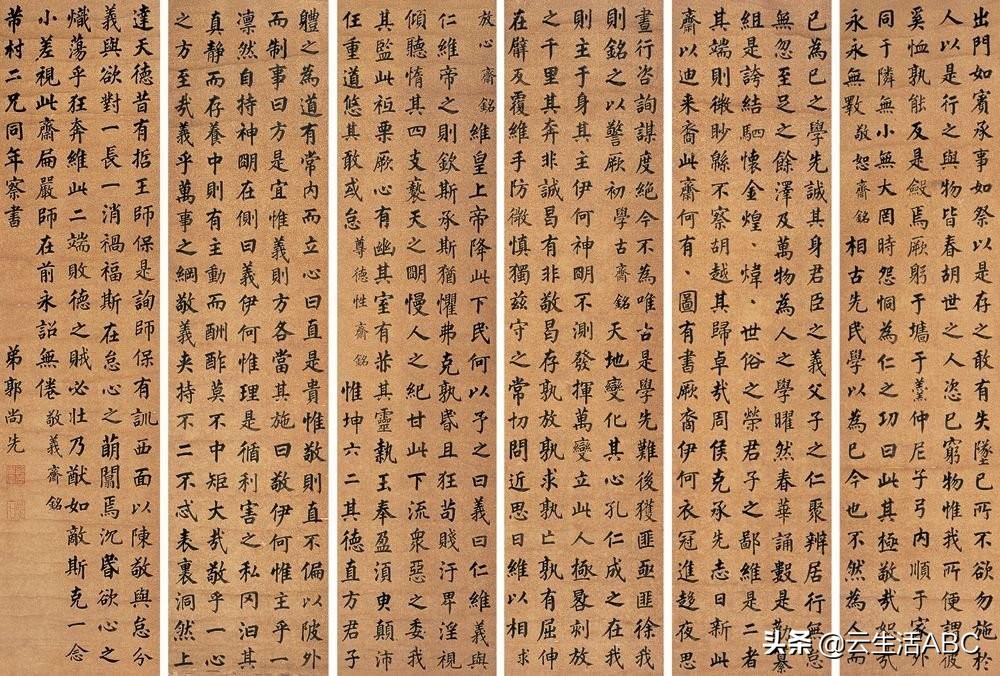 出門如賓承事如祭以是存之敢有失墜己所不欲勿施於
人以是行之與物皆春胡世之人恣己窮物惟我所便謂彼
奚恤孰能反是斂焉厥躬于墻于羹仲尼子弓內順于家外
同于隣無小無大罔時怨恫為仁之功曰此其極敬哉恕哉
永永無斁 敬恕齋銘 相古先民學以為己今也不然為人而
已為己之學先誠其身君臣之義父子之仁聚辨居行無怠
無忽至足之餘澤及萬物為人之學曜然春華誦數是力纂
組是誇結駟懷金煌、煒、世俗之榮君子之鄙維是二者
其端則微眇緜不察胡越其歸卓哉周侯克承先志日新此
齋以迪来裔此齋何有、圖有書厥裔伊何衣冠進趨夜思
晝行咨詢謀度絕今不為唯古是學先難後獲匪亟匪徐我
則銘之以警厥初 學古齋銘 天地變化其心孔仁成之在我
則主于身其主伊何神明不測發揮萬變立此人極晷刻放
之千里其奔非誠曷有非敬曷存孰放孰求孰亡孰有屈伸
在臂反覆維手防微慎獨茲守之常切問近思曰維以相 求
放心齋銘 維皇上帝降此下民何以予之曰義曰仁維義與
仁維帝之則欽斯承斯猶懼弗克孰昏且狂苟賤汙卑淫視
傾聽惰其四支褻天之明慢人之紀甘此下流眾惡之委我
其監此祗栗厥心有幽其室有赤其靈執玉奉盈須臾顛沛
任重道悠其敢或怠 尊德性齋銘 惟坤六二其德直方君子
體之為道有常內而立心曰直是貴惟敬則直不偏以陂外
而制事曰方是宜惟義則方各當其施曰敬伊何惟主乎一
凛然自持神明在側曰義伊何惟理是循利害之私罔汩其
真靜而存養中則有主動而酬酢莫不中矩大哉敬乎一心
之方至哉義乎萬事之綱敬義夹持不二不忒表裏洞然上
達天德昔有哲王師保是詢師保有訓西面以陳敬與怠分
義與欲對一長一消禍福斯在怠心之萌闢焉沉昏欲心之
熾蕩乎狂奔維此二端敗德之賊必壯乃猷如敵斯克一念
小差視此齋扃嚴師在前永詔無倦 敬義齋銘
芾村二兄同年察書 弟郭尚先
头条 @云生活ABC